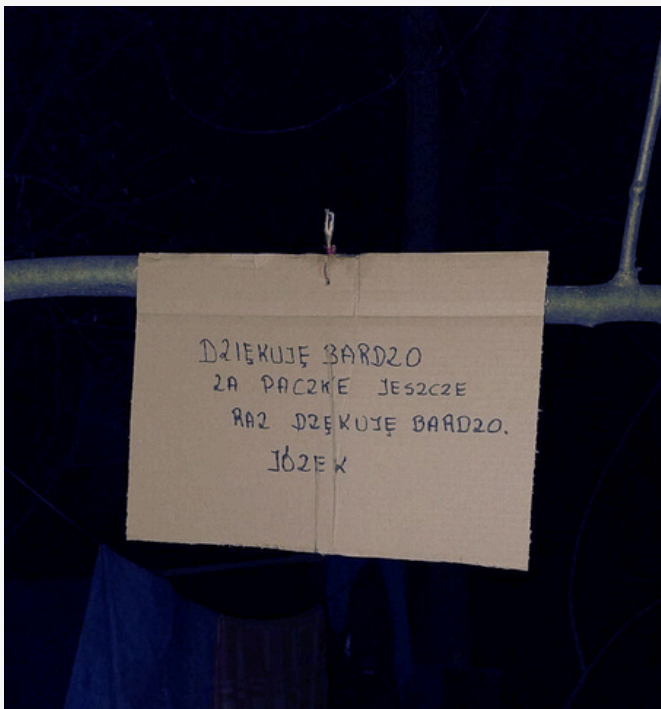 DZIĘKUJĘ BARDZO
ZA PACZKE JESZCZE
RAZ DZĘKUJĘ BARDZO.
JÓZEK